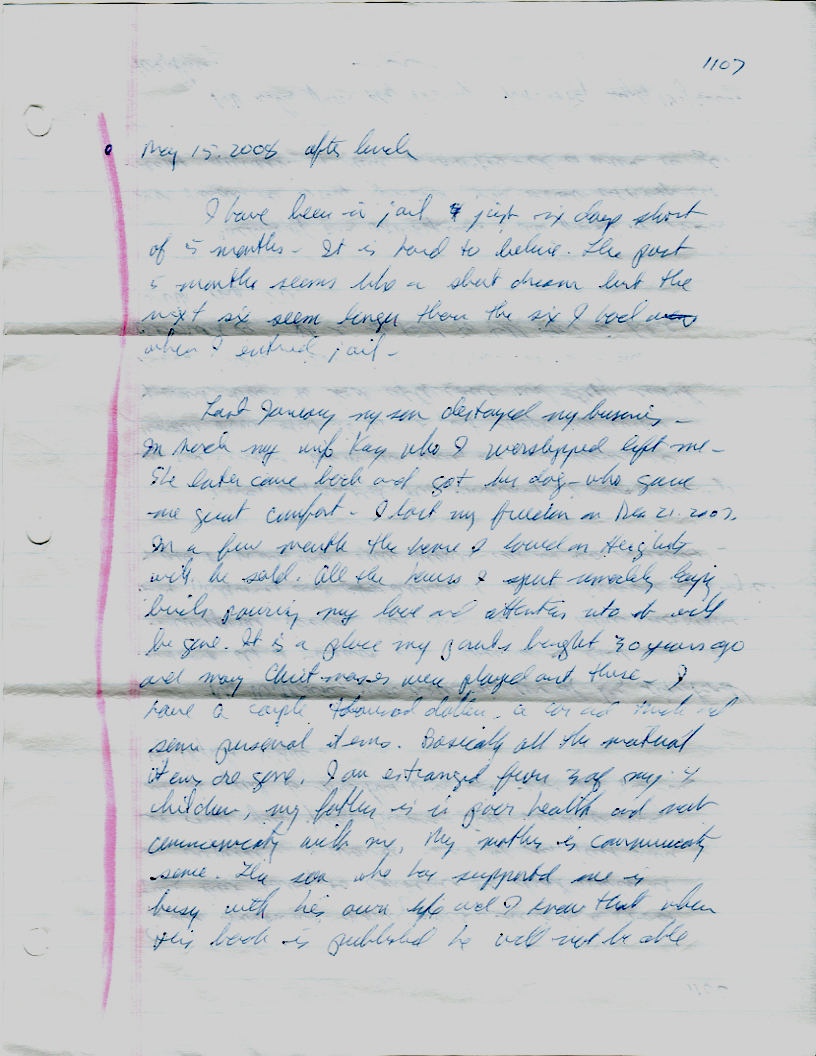 1107
May 15. 2008 after lunch
I have been in jail just six days short
of 5 months - It is hard to believe. The past
5 months seems like a short dream but the
next six seem longer than the six I had
when I entered jail -
Last January my son destroyed my business -
In March my wife Kay who I worshipped left me -
She later came back and got her dog - who gave
me great comfort - I lost my freedom on Dec 21. 2007.
In a few months the home I loved on Heights
will be sold. All the hours I spent
pouring my love and attention into it will
be gone. It is a place my parents bought 30 years ago
and many Christmases were played out there - I
have a couple thousand dollars, a car and truck and
some personal items. Basically all the material
items are gone. I am estranged from 3 of my 4
children, my father is in poor health and not
communicating with me, My mother is communicating
some. The son who has supported me is
busy with his own life and I know that when
this book is published he will not be able